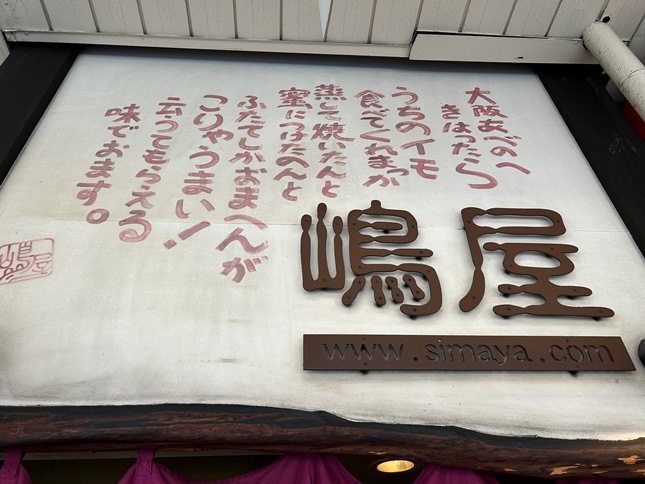 大阪あべのへ
きはったら
うちのイモ
食べてくれまっか
蒸して焼いたんと
蜜につけたのんと
ふたてしかおまへんが
こりゃうまい!
云うてもらえる
味でおます。
嶋屋
www.simaya.com
嶋屋